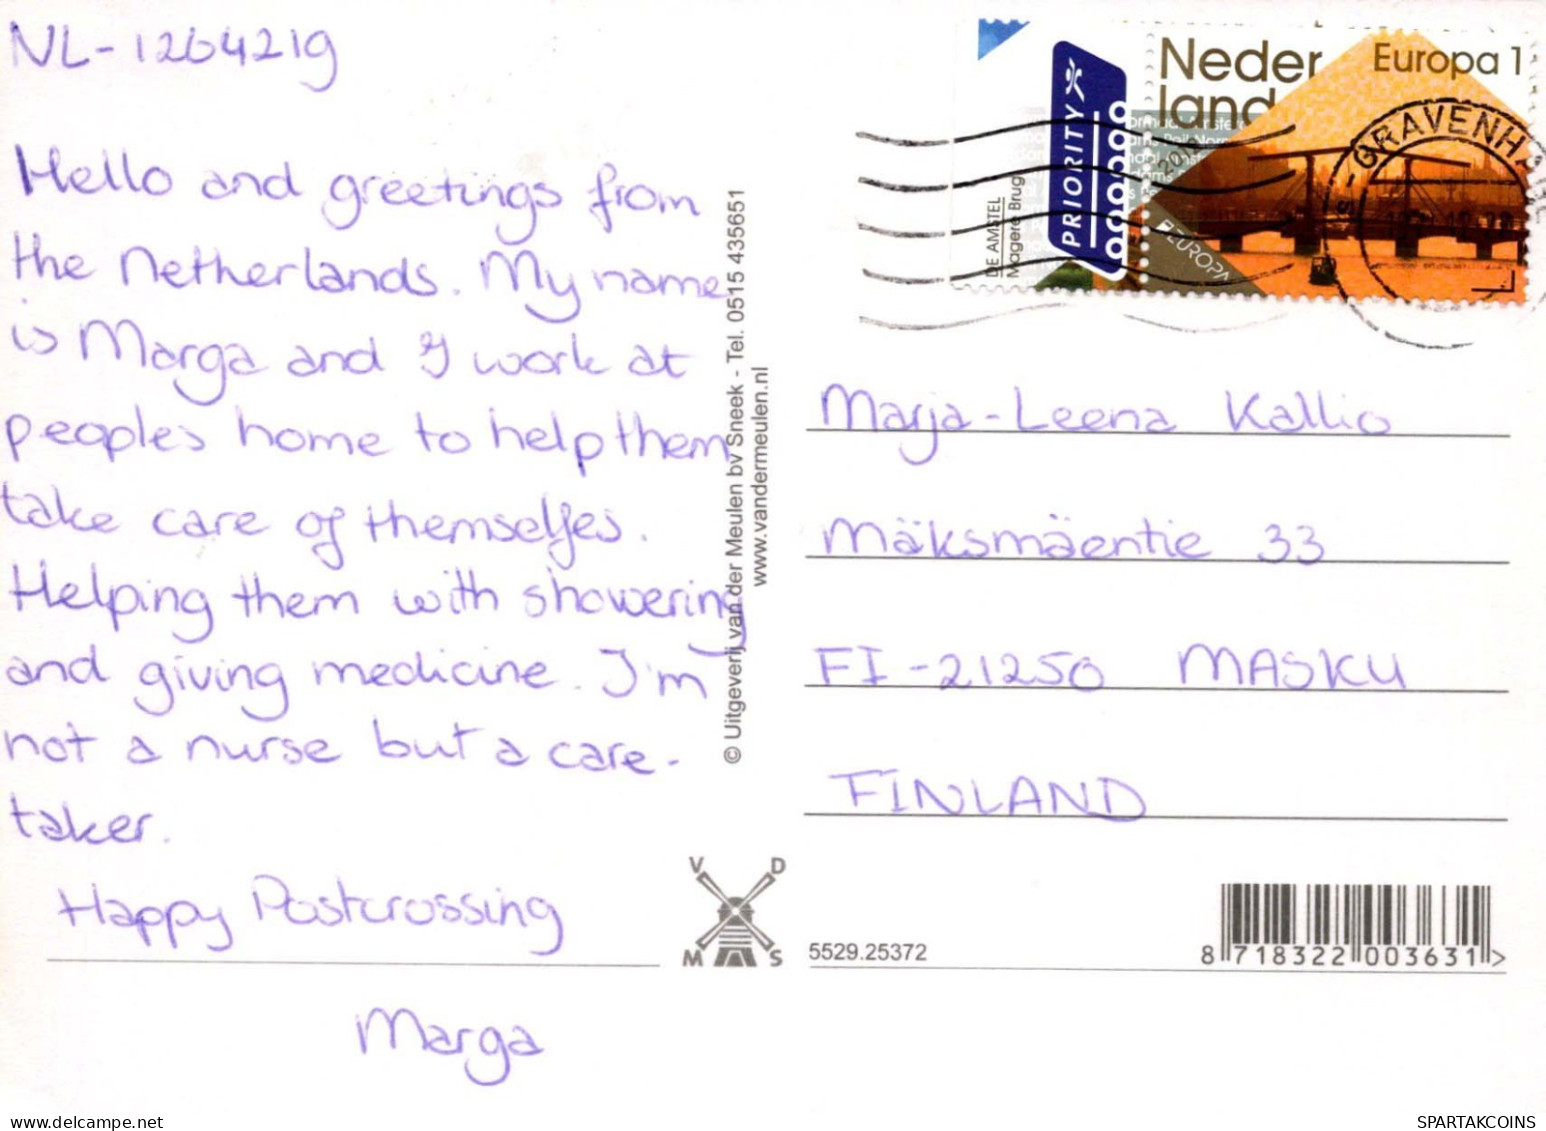 NL-1264219
Hello and greetings from
the Netherlands. My name
is Marga and I work at
peoples home to help them
take care of themselfes.
Helping them with showering
and giving medicine. I'm
not a nurse but a care-
taker.
Happy Postcrossing
Marga
© Uitgeverij van der Meulen bv Sneek - Tel. 0515 435651
www.vandermeulen.nl
V D
M S
DE AMSTEL
Magere Brug
PRIORITY
Neder
land
Europa 1
EUROPA
'S-GRAVENHA
Marja-Leena Kallio
Mäksmäentie 33
FI-21250 MASKU
FINLAND
5529.25372
8 718322 003631 >
SPARTAKCOINS